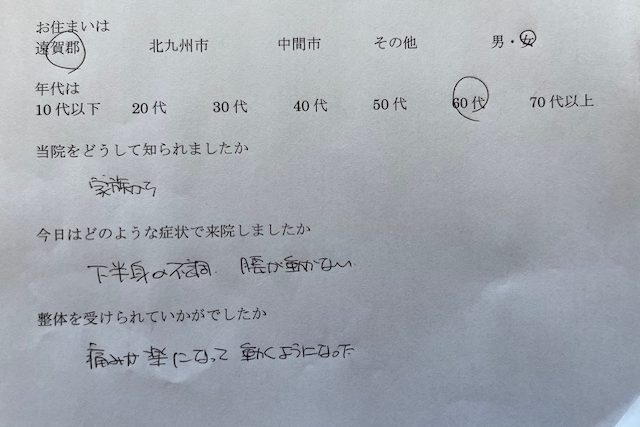 お住まいは
遠賀郡 北九州市 中間市 その他 男・女
年代は
10代以下 20代 30代 40代 50代 60代 70代以上
当院をどうして知られましたか
家族から
今日はどのような症状で来院しましたか
下半身の不調. 腰が動かない
整体を受けられていかがでしたか
痛みが楽になって動くようになった